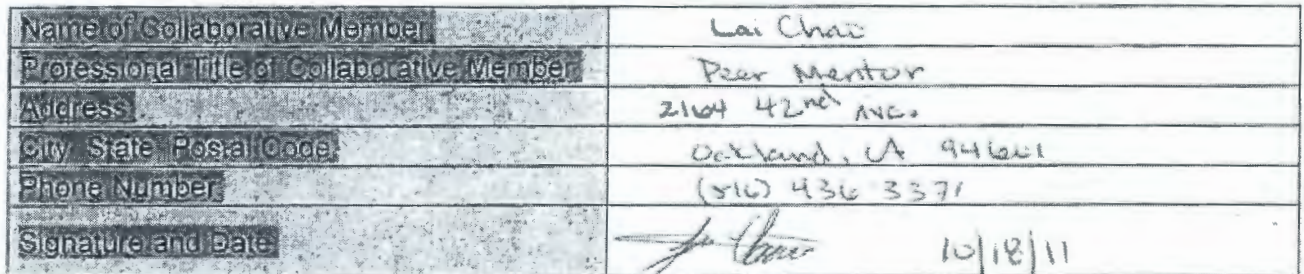 Name of Collaborative Member Lai Chao
Professional Title of Collaborative Member Peer Mentor
Address 2164 42nd Ave.
City State Postal Code Oakland, CA 94601
Phone Number (510) 436 3371
Signature and Date 10/18/11